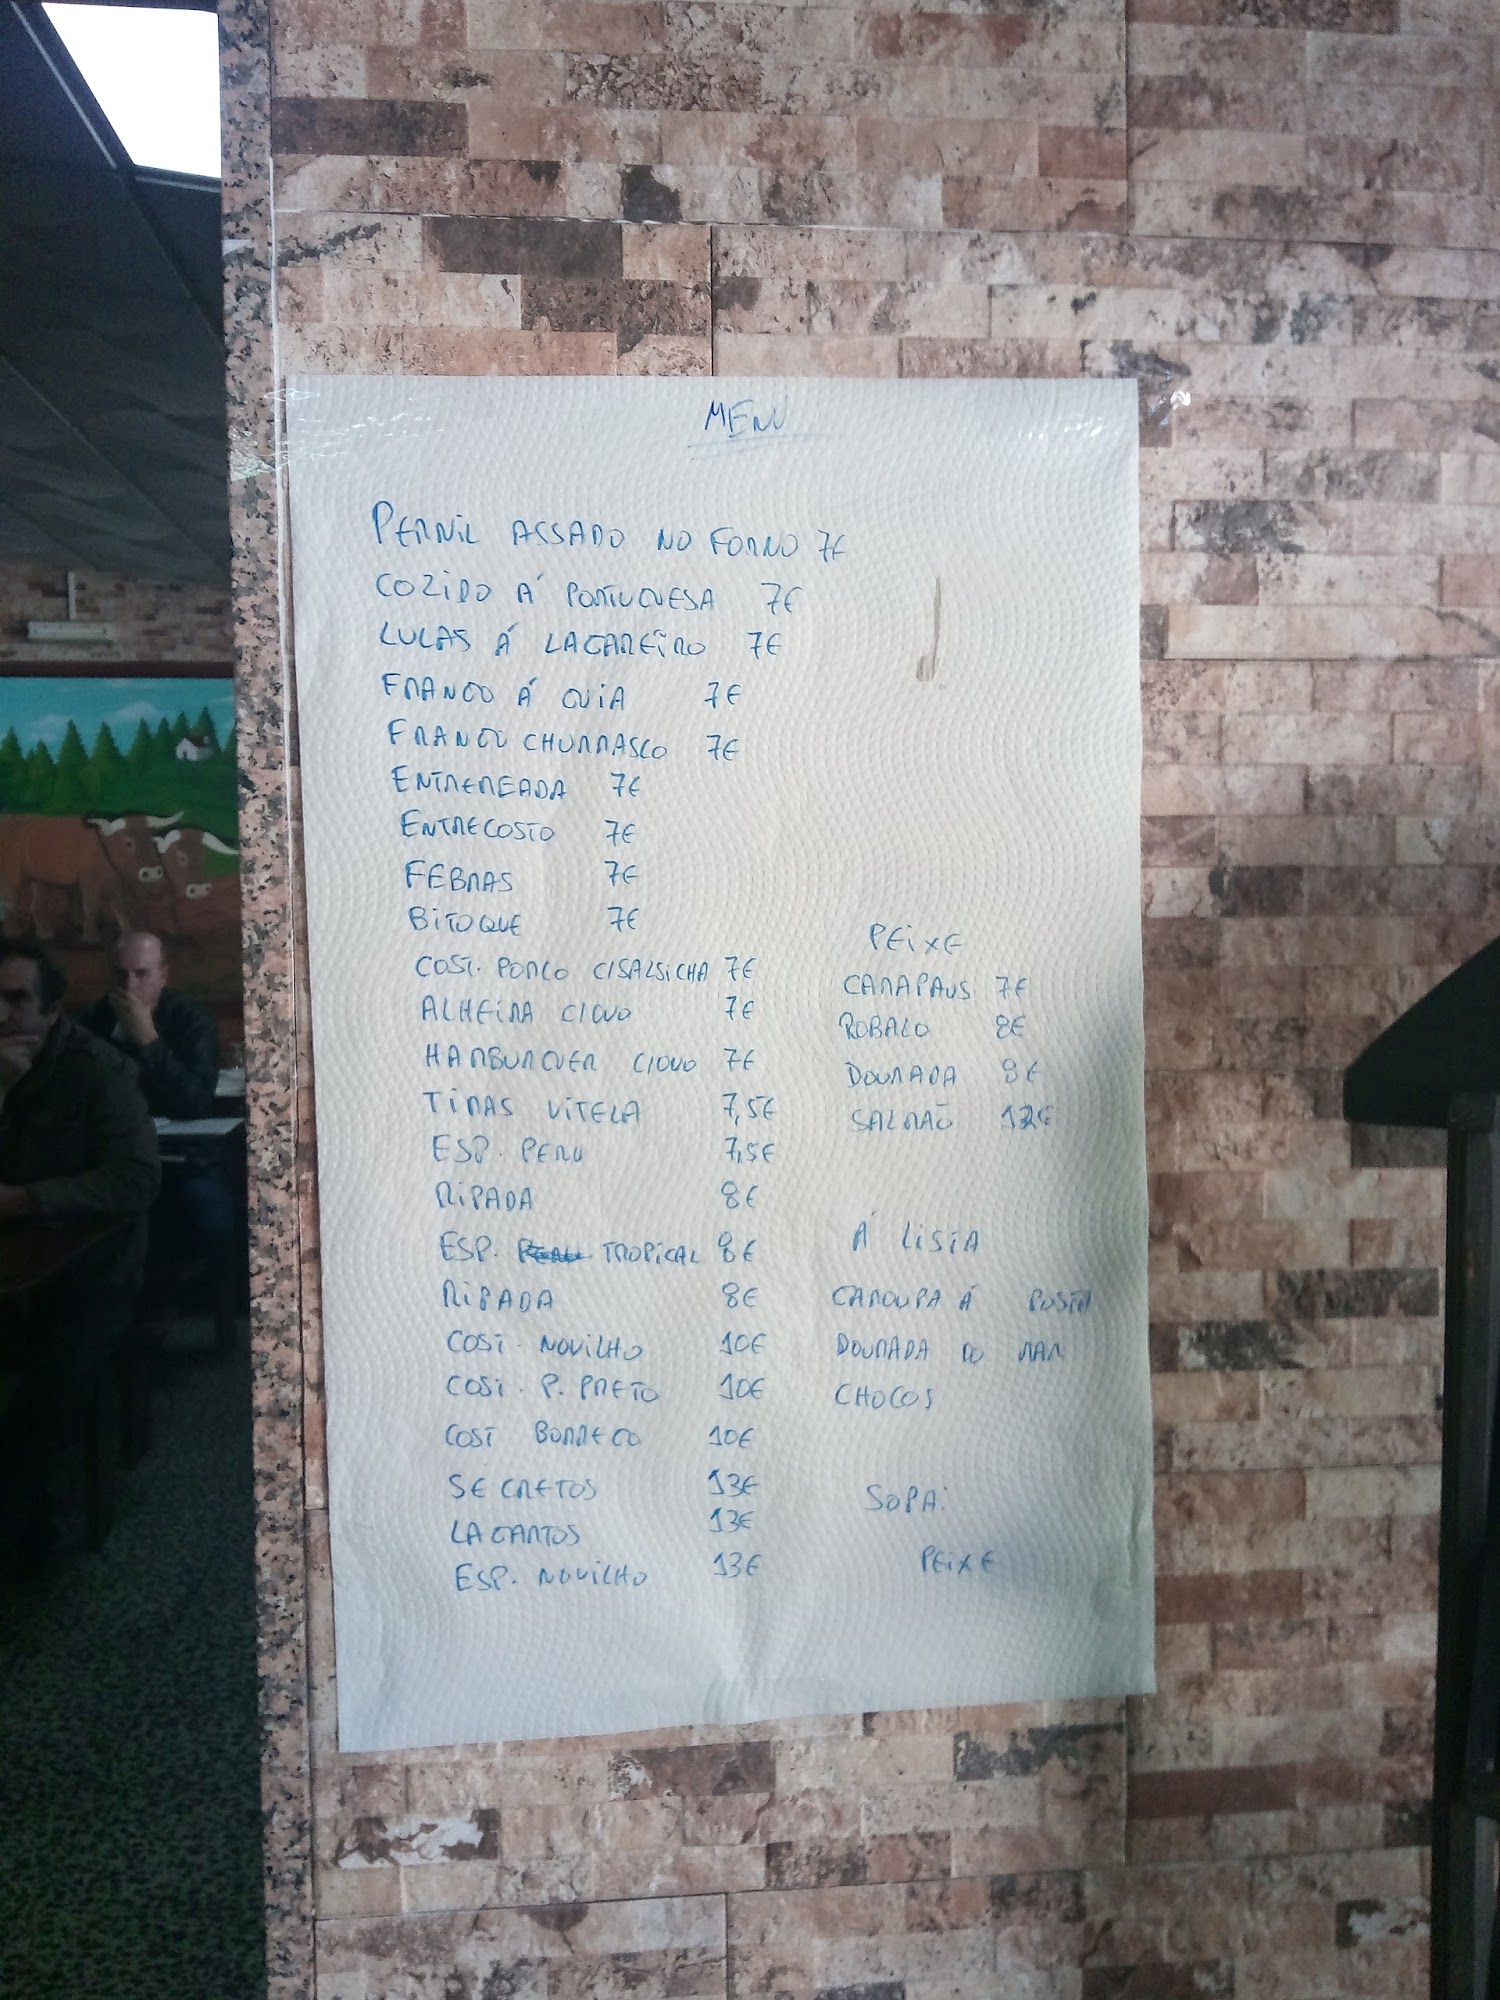 MENU
PERNIL ASSADO NO FORNO 7€
COZIDO Á PORTUGUESA 7€
LULAS Á LAGAREIRO 7€
FRANGO Á GUIA 7€
FRANGO CHURRASCO 7€
ENTREMEADA 7€
ENTRECOSTO 7€
FEBRAS 7€
BITOQUE 7€
COST. PORCO C/SALSICHA 7€
ALHEIRA C/OVO 7€
HAMBURGUER C/OVO 7€
TIRAS VITELA 7,5€
ESP. PERU 7,5€
RIPADA 8€
ESP. TROPICAL 8€
RIPADA 8€
COST. NOVILHO 10€
COST. P. PRETO 10€
COST BORREGO 10€
SECRETOS 13€
LAGARTOS 13€
ESP. NOVILHO 13€
PEIXE
CARAPAUS 7€
ROBALO 8€
DOURADA 8€
SALMÃO 12€
Á LISTA
GAROUPA Á POSTA
DOURADA DO MAR
CHOCOS
SOPA:
PEIXE